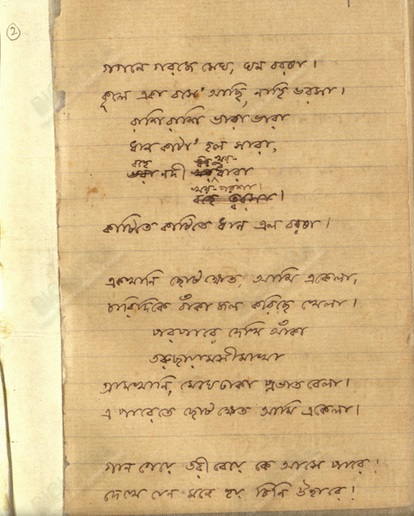 ২
গগনে গরজে মেঘ, ঘন বরষা।
কূলে একা বসে' আছি, নাহি ভরসা।
রাশি রাশি ভারা ভারা
ধান কাটা' হল সারা,
নদী ধারা
খর-পরশা।
কাটিতে কাটিতে ধান এল বরষা।
একখানি ছোট ক্ষেত, আমি একেলা,
চারিদিকে বাঁকা জল করিছে খেলা।
পরপারে দেখি আঁকা
তরুছায়ামসীমাখা
গ্রামখানি, মেঘে ঢাকা প্রভাত বেলা।
এ পারেতে ছোট ক্ষেত আমি একেলা।
গান গেয়ে তরী বেয়ে কে আসে পারে!
দেখে যেন মনে হয় চিনি উহারে!